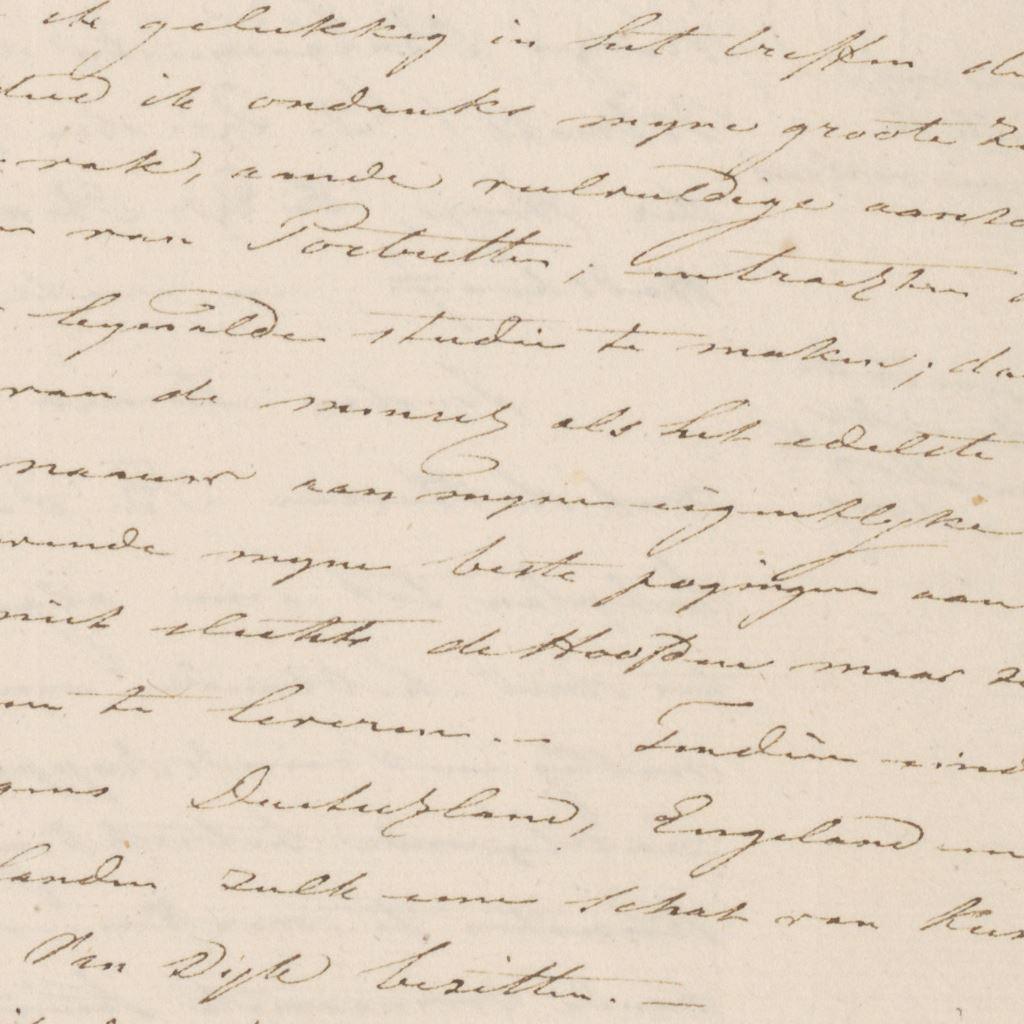 ik gelukkig in het treffen de
ik ondanks myne groote
aan de veelvuldige
van Portretten, en trachten
bepaalde studie te maken; da
van de mensch als het edelste
naauw aan myne eigentlyke
myne beste pogingen aan
niet slechts de Hoofden maar
te leveren. — Indien
Duitschland, Engeland en
landen zulk eene schat van
Van Dijk bezitten. —